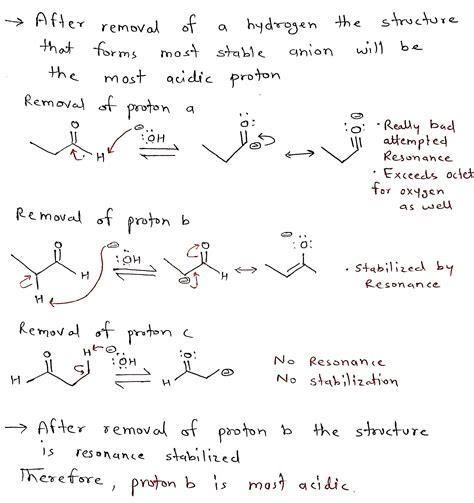 → After removal of a hydrogen the structure
that forms most stable anion will be
the most acidic proton
Removal of proton a
O H ⊖ :ÖH ⇌ :O: ⊖ ↔ ⊖ :O:
• Really bad
attempted
Resonance
• Exceeds octet
for oxygen
as well
Removal of proton b
O H H ⊖ :ÖH ⇌ O H ⊖ ↔ ⊖ :O:
• Stabilized by
Resonance
Removal of proton c
H O H ⊖ :ÖH ⇌ H :O: ⊖
No Resonance
No stabilization
→ After removal of proton b the structure
is resonance stabilized
Therefore, proton b is most acidic.